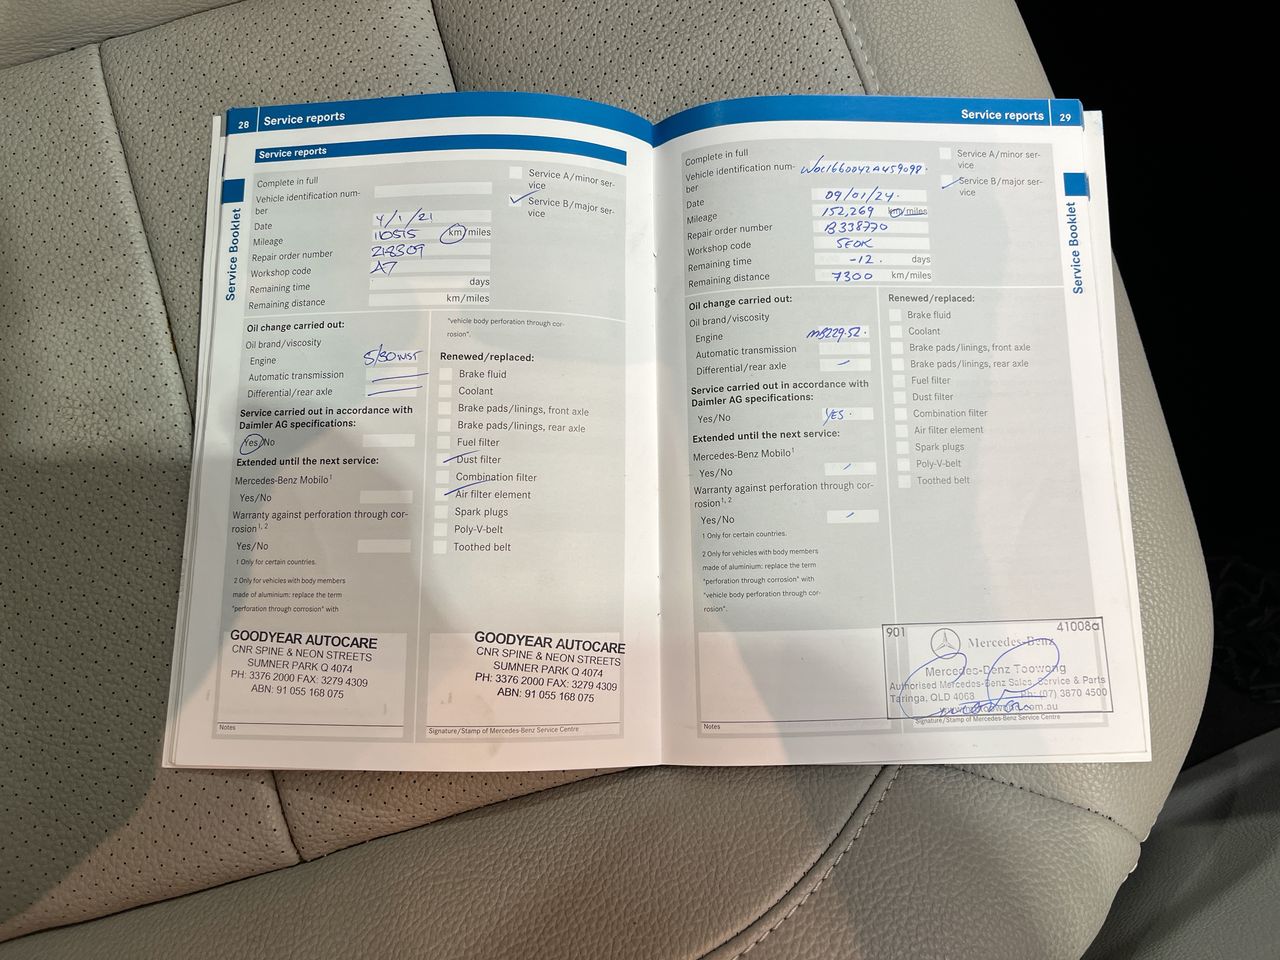 28 Service reports
Service reports
Complete in full
Vehicle identification num-
ber
Date 4/1/21
Mileage 110515 km/miles
Repair order number 218309
Workshop code A7
Remaining time days
Remaining distance km/miles
Service A/minor ser-
vice
Service B/major ser-
vice
Service Booklet
Oil change carried out:
Oil brand/viscosity
Engine 5/30
Automatic transmission
Differential/rear axle
Service carried out in accordance with
Daimler AG specifications:
Yes/No
Extended until the next service:
Mercedes-Benz Mobilo¹
Yes/No
Warranty against perforation through cor-
rosion¹, ²
Yes/No
1 Only for certain countries.
2 Only for vehicles with body members
made of aluminium: replace the term
"perforation through corrosion" with
"vehicle body perforation through cor-
rosion".
Renewed/replaced:
Brake fluid
Coolant
Brake pads/linings, front axle
Brake pads/linings, rear axle
Fuel filter
Dust filter
Combination filter
Air filter element
Spark plugs
Poly-V-belt
Toothed belt
GOODYEAR AUTOCARE
CNR SPINE & NEON STREETS
SUMNER PARK Q 4074
PH: 3376 2000 FAX: 3279 4309
ABN: 91 055 168 075
Notes
GOODYEAR AUTOCARE
CNR SPINE & NEON STREETS
SUMNER PARK Q 4074
PH: 3376 2000 FAX: 3279 4309
ABN: 91 055 168 075
Signature/Stamp of Mercedes-Benz Service Centre
Service reports 29
Complete in full
Vehicle identification num-
ber
Date 09/01/24.
Mileage 152,269 km/miles
Repair order number B338770
Workshop code SEOK
Remaining time -12. days
Remaining distance 7300 km/miles
Service A/minor ser-
vice
Service B/major ser-
vice
Service Booklet
Oil change carried out:
Oil brand/viscosity
Engine MB229.52.
Automatic transmission
Differential/rear axle
Service carried out in accordance with
Daimler AG specifications:
Yes/No YES.
Extended until the next service:
Mercedes-Benz Mobilo¹
Yes/No
Warranty against perforation through cor-
rosion¹, ²
Yes/No
1 Only for certain countries.
2 Only for vehicles with body members
made of aluminium: replace the term
"perforation through corrosion" with
"vehicle body perforation through cor-
rosion".
Renewed/replaced:
Brake fluid
Coolant
Brake pads/linings, front axle
Brake pads/linings, rear axle
Fuel filter
Dust filter
Combination filter
Air filter element
Spark plugs
Poly-V-belt
Toothed belt
901 41008a
Mercedes-Benz
Mercedes-Benz Toowong
Authorised Mercedes-Benz Sales, Service & Parts
Taringa. QLD 4068 Ph: (07) 3870 4500
Notes
Signature/Stamp of Mercedes-Benz Service Centre